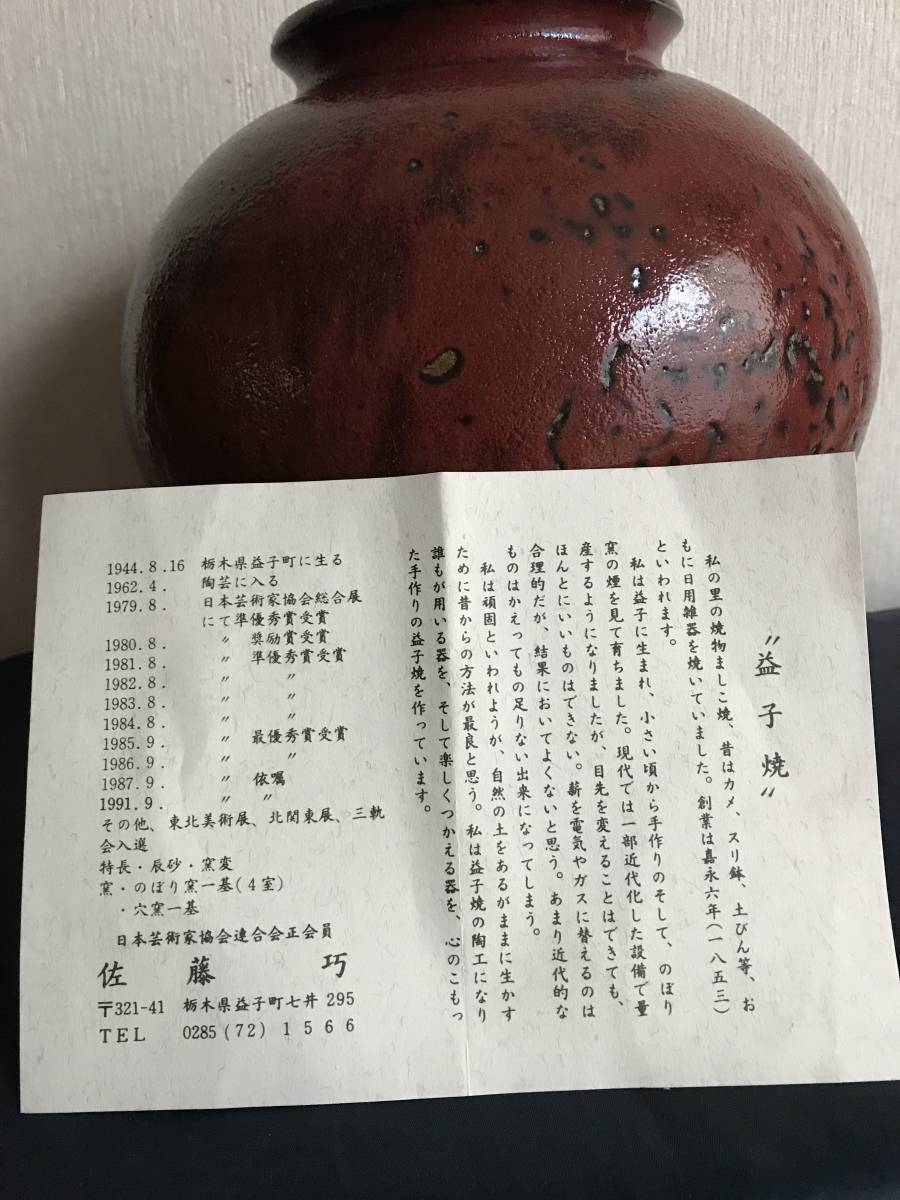 〝益子焼〟
私の里の焼物ましこ焼、昔はカメ、スリ鉢、土びん等、お
もに日用雑器を焼いていました。創業は嘉永六年(一八五三)
といわれます。
私は益子に生まれ、小さい頃から手作りのそして、のぼり
窯の煙を見て育ちました。現代では一部近代化した設備で量
産するようになりましたが、目先を変えることはできても、
ほんとにいいものはできない。薪を電気やガスに替えるのは
合理的だが、結果においてよくないと思う。あまり近代的な
ものはかえってもの足りない出来になってしまう。
私は頑固といわれようが、自然の土をあるがままに生かす
ために昔からの方法が最良と思う。私は益子焼の陶工になり
誰もが用いる器を、そして楽しくつかえる器を、心のこもっ
た手作りの益子焼を作っています。
1944.8.16 栃木県益子町に生る
1962.4. 陶芸に入る
1979.8. 日本芸術家協会総合展
にて準優秀賞受賞
1980.8. 〃 奨励賞受賞
1981.8. 〃 準優秀賞受賞
1982.8. 〃 〃
1983.8. 〃 〃
1984.8. 〃 〃
1985.9. 〃 最優秀賞受賞
1986.9. 〃 〃
1987.9. 〃 依嘱
1991.9. 〃 〃
その他、東北美術展、北関東展、三軌
会入選
特長・辰砂・窯変
窯・のぼり窯一基(4室)
・穴窯一基
日本芸術家協会連合会正会員
佐藤 巧
〒321-41 栃木県益子町七井295
TEL 0285(72)1566